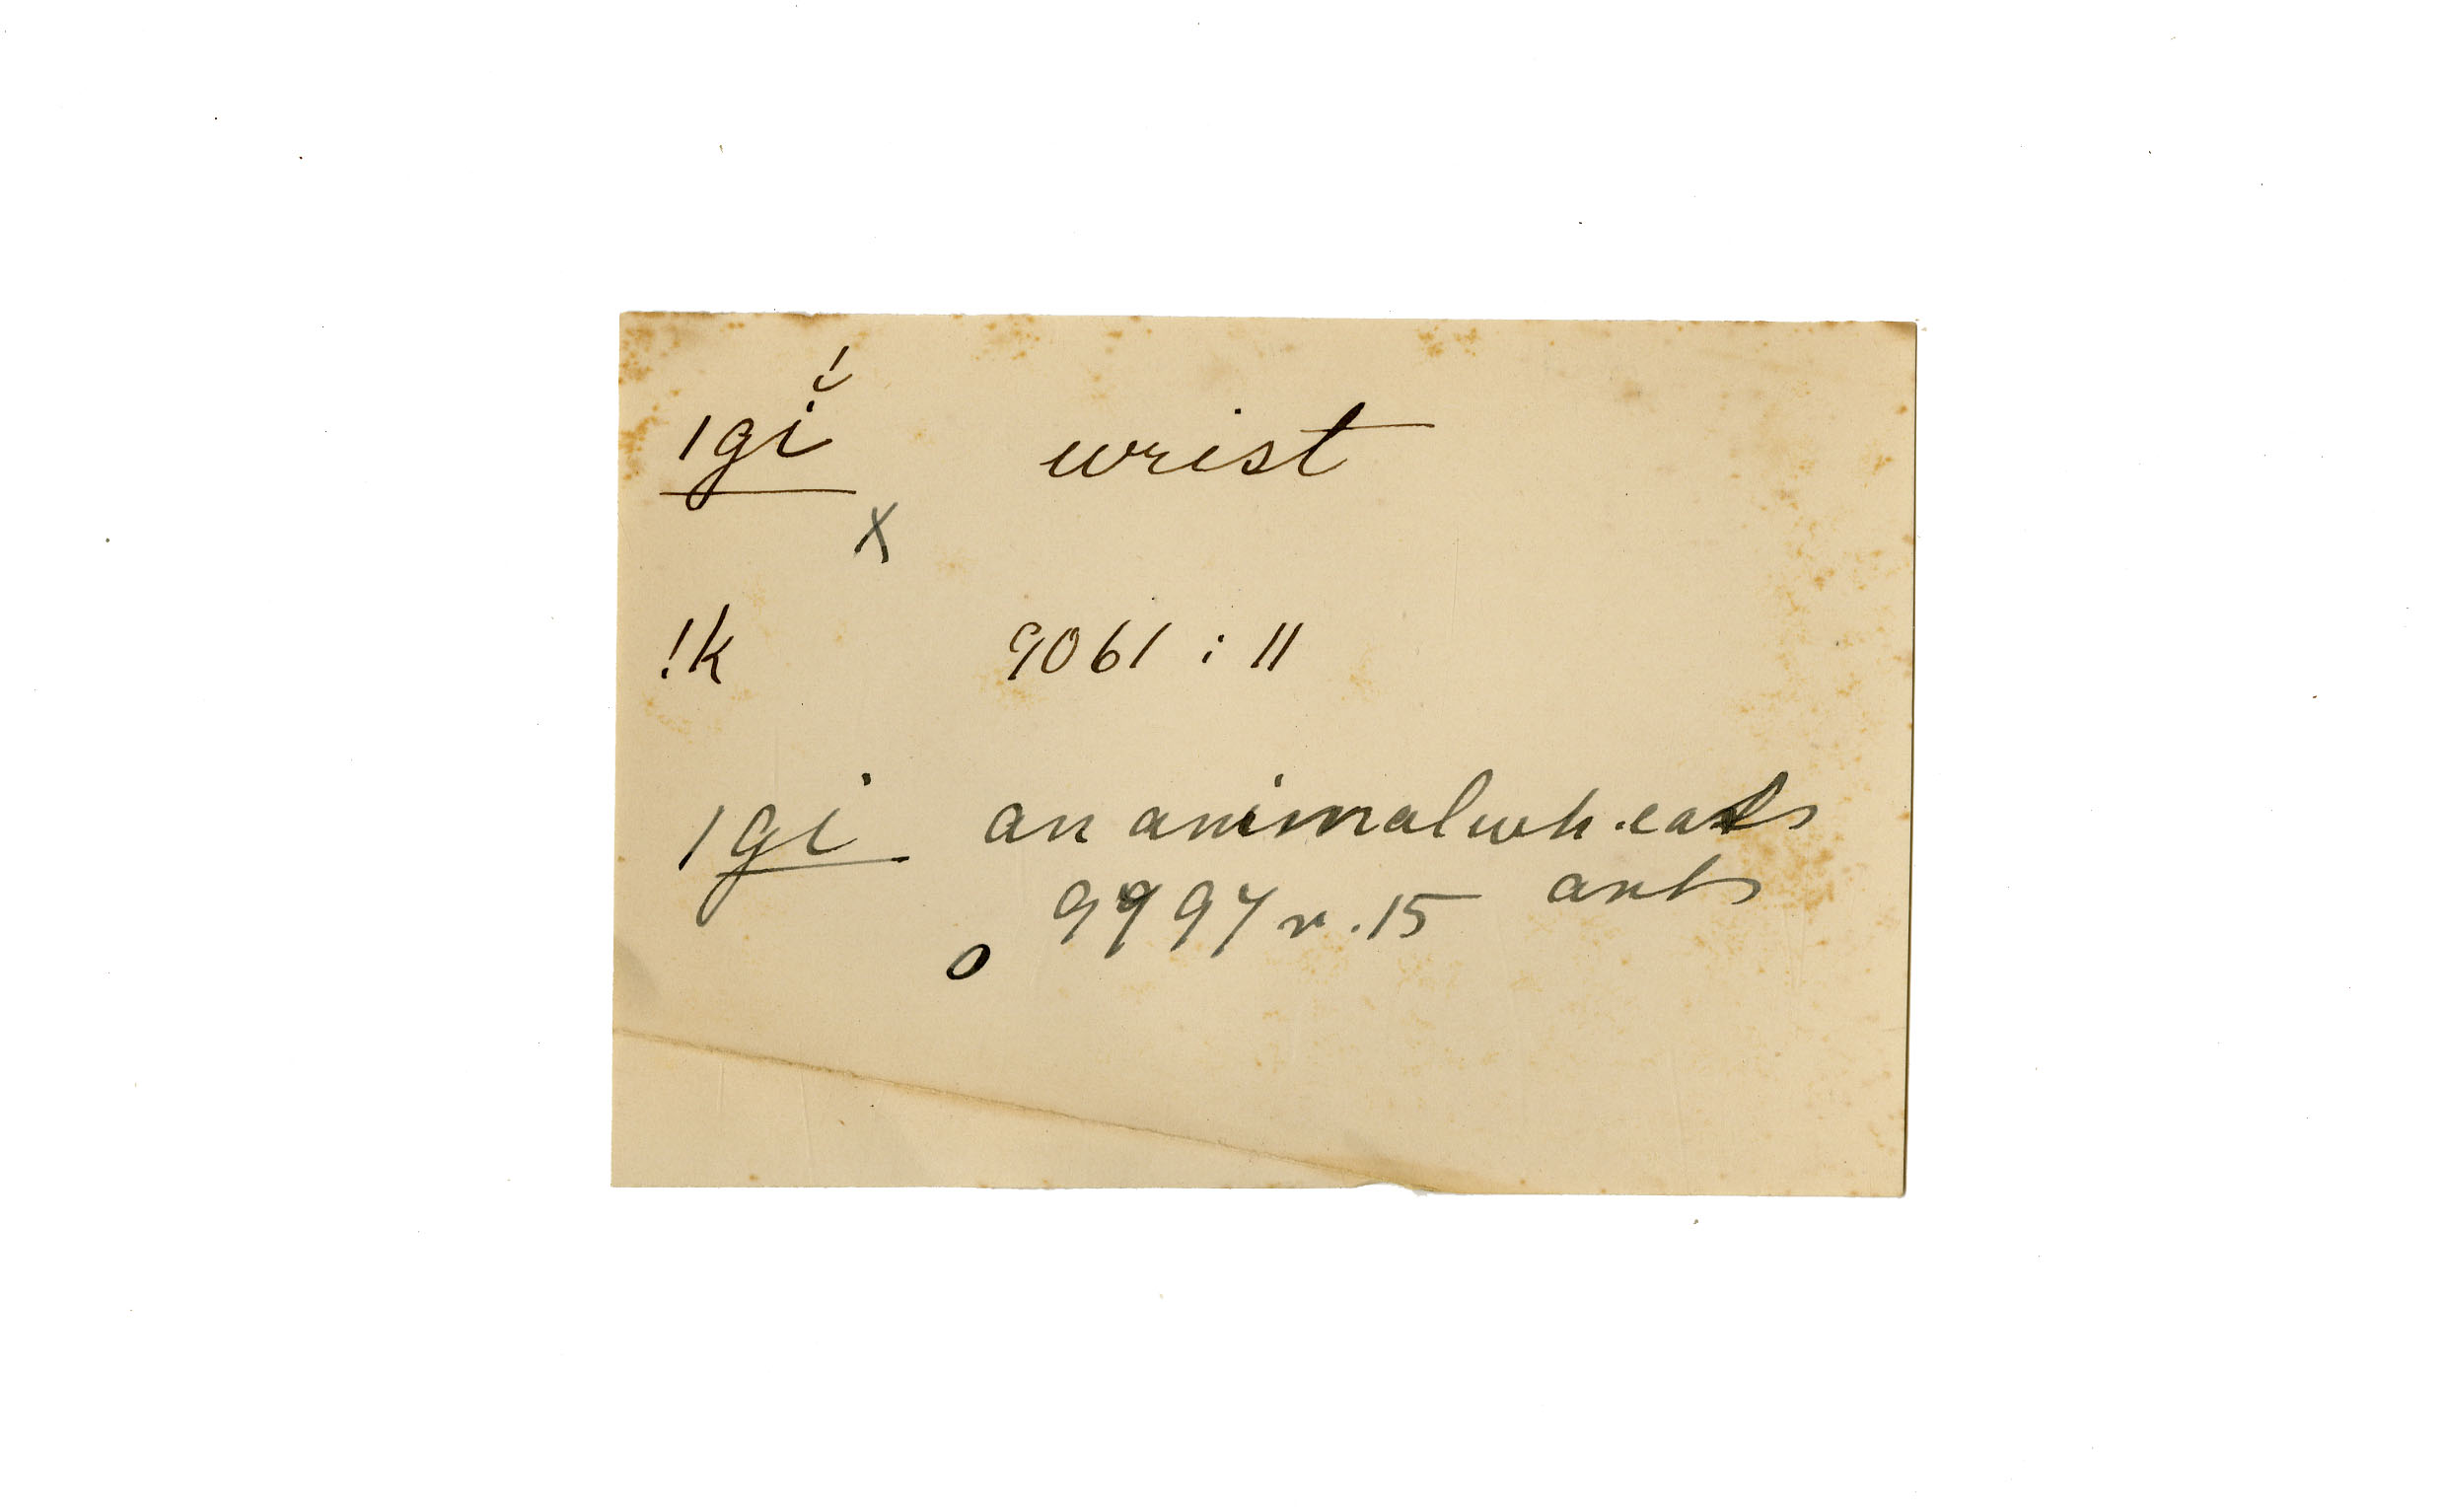 ǀgĭ́ wrist
X
!k 9061 : 11
ǀgi an animal wh. eats
ants
9997 r. 15
o